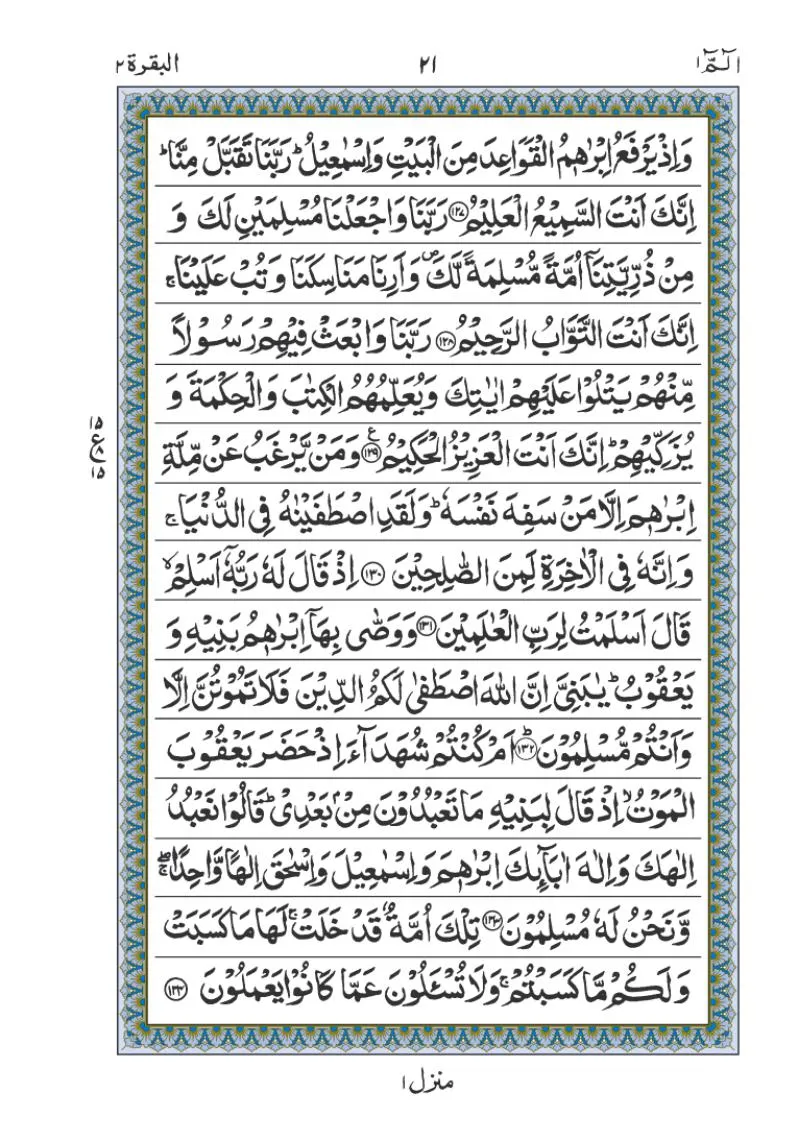 الٓمّٓ ١
٢١
البقرة ٢
وَاِذْ یَرْفَعُ اِبْرٰهٖمُ الْقَوَاعِدَ مِنَ الْبَیْتِ وَاِسْمٰعِیْلُ ؕ رَبَّنَا تَقَبَّلْ مِنَّا ؕ
اِنَّكَ اَنْتَ السَّمِیْعُ الْعَلِیْمُ ﴿١٢٧﴾ رَبَّنَا وَاجْعَلْنَا مُسْلِمَیْنِ لَكَ وَ
مِنْ ذُرِّیَّتِنَاۤ اُمَّةً مُّسْلِمَةً لَّكَ ۪ وَاَرِنَا مَنَاسِكَنَا وَتُبْ عَلَیْنَا ۚ
اِنَّكَ اَنْتَ التَّوَّابُ الرَّحِیْمُ ﴿١٢٨﴾ رَبَّنَا وَابْعَثْ فِیْهِمْ رَسُوْلًا
مِّنْهُمْ یَتْلُوْا عَلَیْهِمْ اٰیٰتِكَ وَیُعَلِّمُهُمُ الْكِتٰبَ وَالْحِكْمَةَ وَ
یُزَكِّیْهِمْ ؕ اِنَّكَ اَنْتَ الْعَزِیْزُ الْحَكِیْمُ ﴿١٢٩﴾ ع وَمَنْ یَّرْغَبُ عَنْ مِّلَّةِ
١٥
ع ٨
١٥
اِبْرٰهٖمَ اِلَّا مَنْ سَفِهَ نَفْسَهٗ ؕ وَلَقَدِ اصْطَفَیْنٰهُ فِی الدُّنْیَا ۚ
وَاِنَّهٗ فِی الْاٰخِرَةِ لَمِنَ الصّٰلِحِیْنَ ﴿١٣٠﴾ اِذْ قَالَ لَهٗ رَبُّهٗۤ اَسْلِمْ ۙ
قَالَ اَسْلَمْتُ لِرَبِّ الْعٰلَمِیْنَ ﴿١٣١﴾ وَوَصّٰی بِهَاۤ اِبْرٰهٖمُ بَنِیْهِ وَ
یَعْقُوْبُ ؕ یٰبَنِیَّ اِنَّ اللّٰهَ اصْطَفٰی لَكُمُ الدِّیْنَ فَلَا تَمُوْتُنَّ اِلَّا
وَاَنْتُمْ مُّسْلِمُوْنَ ﴿١٣٢﴾ ؕ اَمْ كُنْتُمْ شُهَدَآءَ اِذْ حَضَرَ یَعْقُوْبَ
الْمَوْتُ ۙ اِذْ قَالَ لِبَنِیْهِ مَا تَعْبُدُوْنَ مِنْۢ بَعْدِیْ ؕ قَالُوْا نَعْبُدُ
اِلٰهَكَ وَاِلٰهَ اٰبَآىِٕكَ اِبْرٰهٖمَ وَاِسْمٰعِیْلَ وَاِسْحٰقَ اِلٰهًا وَّاحِدًا ۖۚ
وَّنَحْنُ لَهٗ مُسْلِمُوْنَ ﴿١٣٣﴾ تِلْكَ اُمَّةٌ قَدْ خَلَتْ ۚ لَهَا مَا كَسَبَتْ
وَلَكُمْ مَّا كَسَبْتُمْ ۚ وَلَا تُسْـَٔلُوْنَ عَمَّا كَانُوْا یَعْمَلُوْنَ ﴿١٣٤﴾
منزل ١